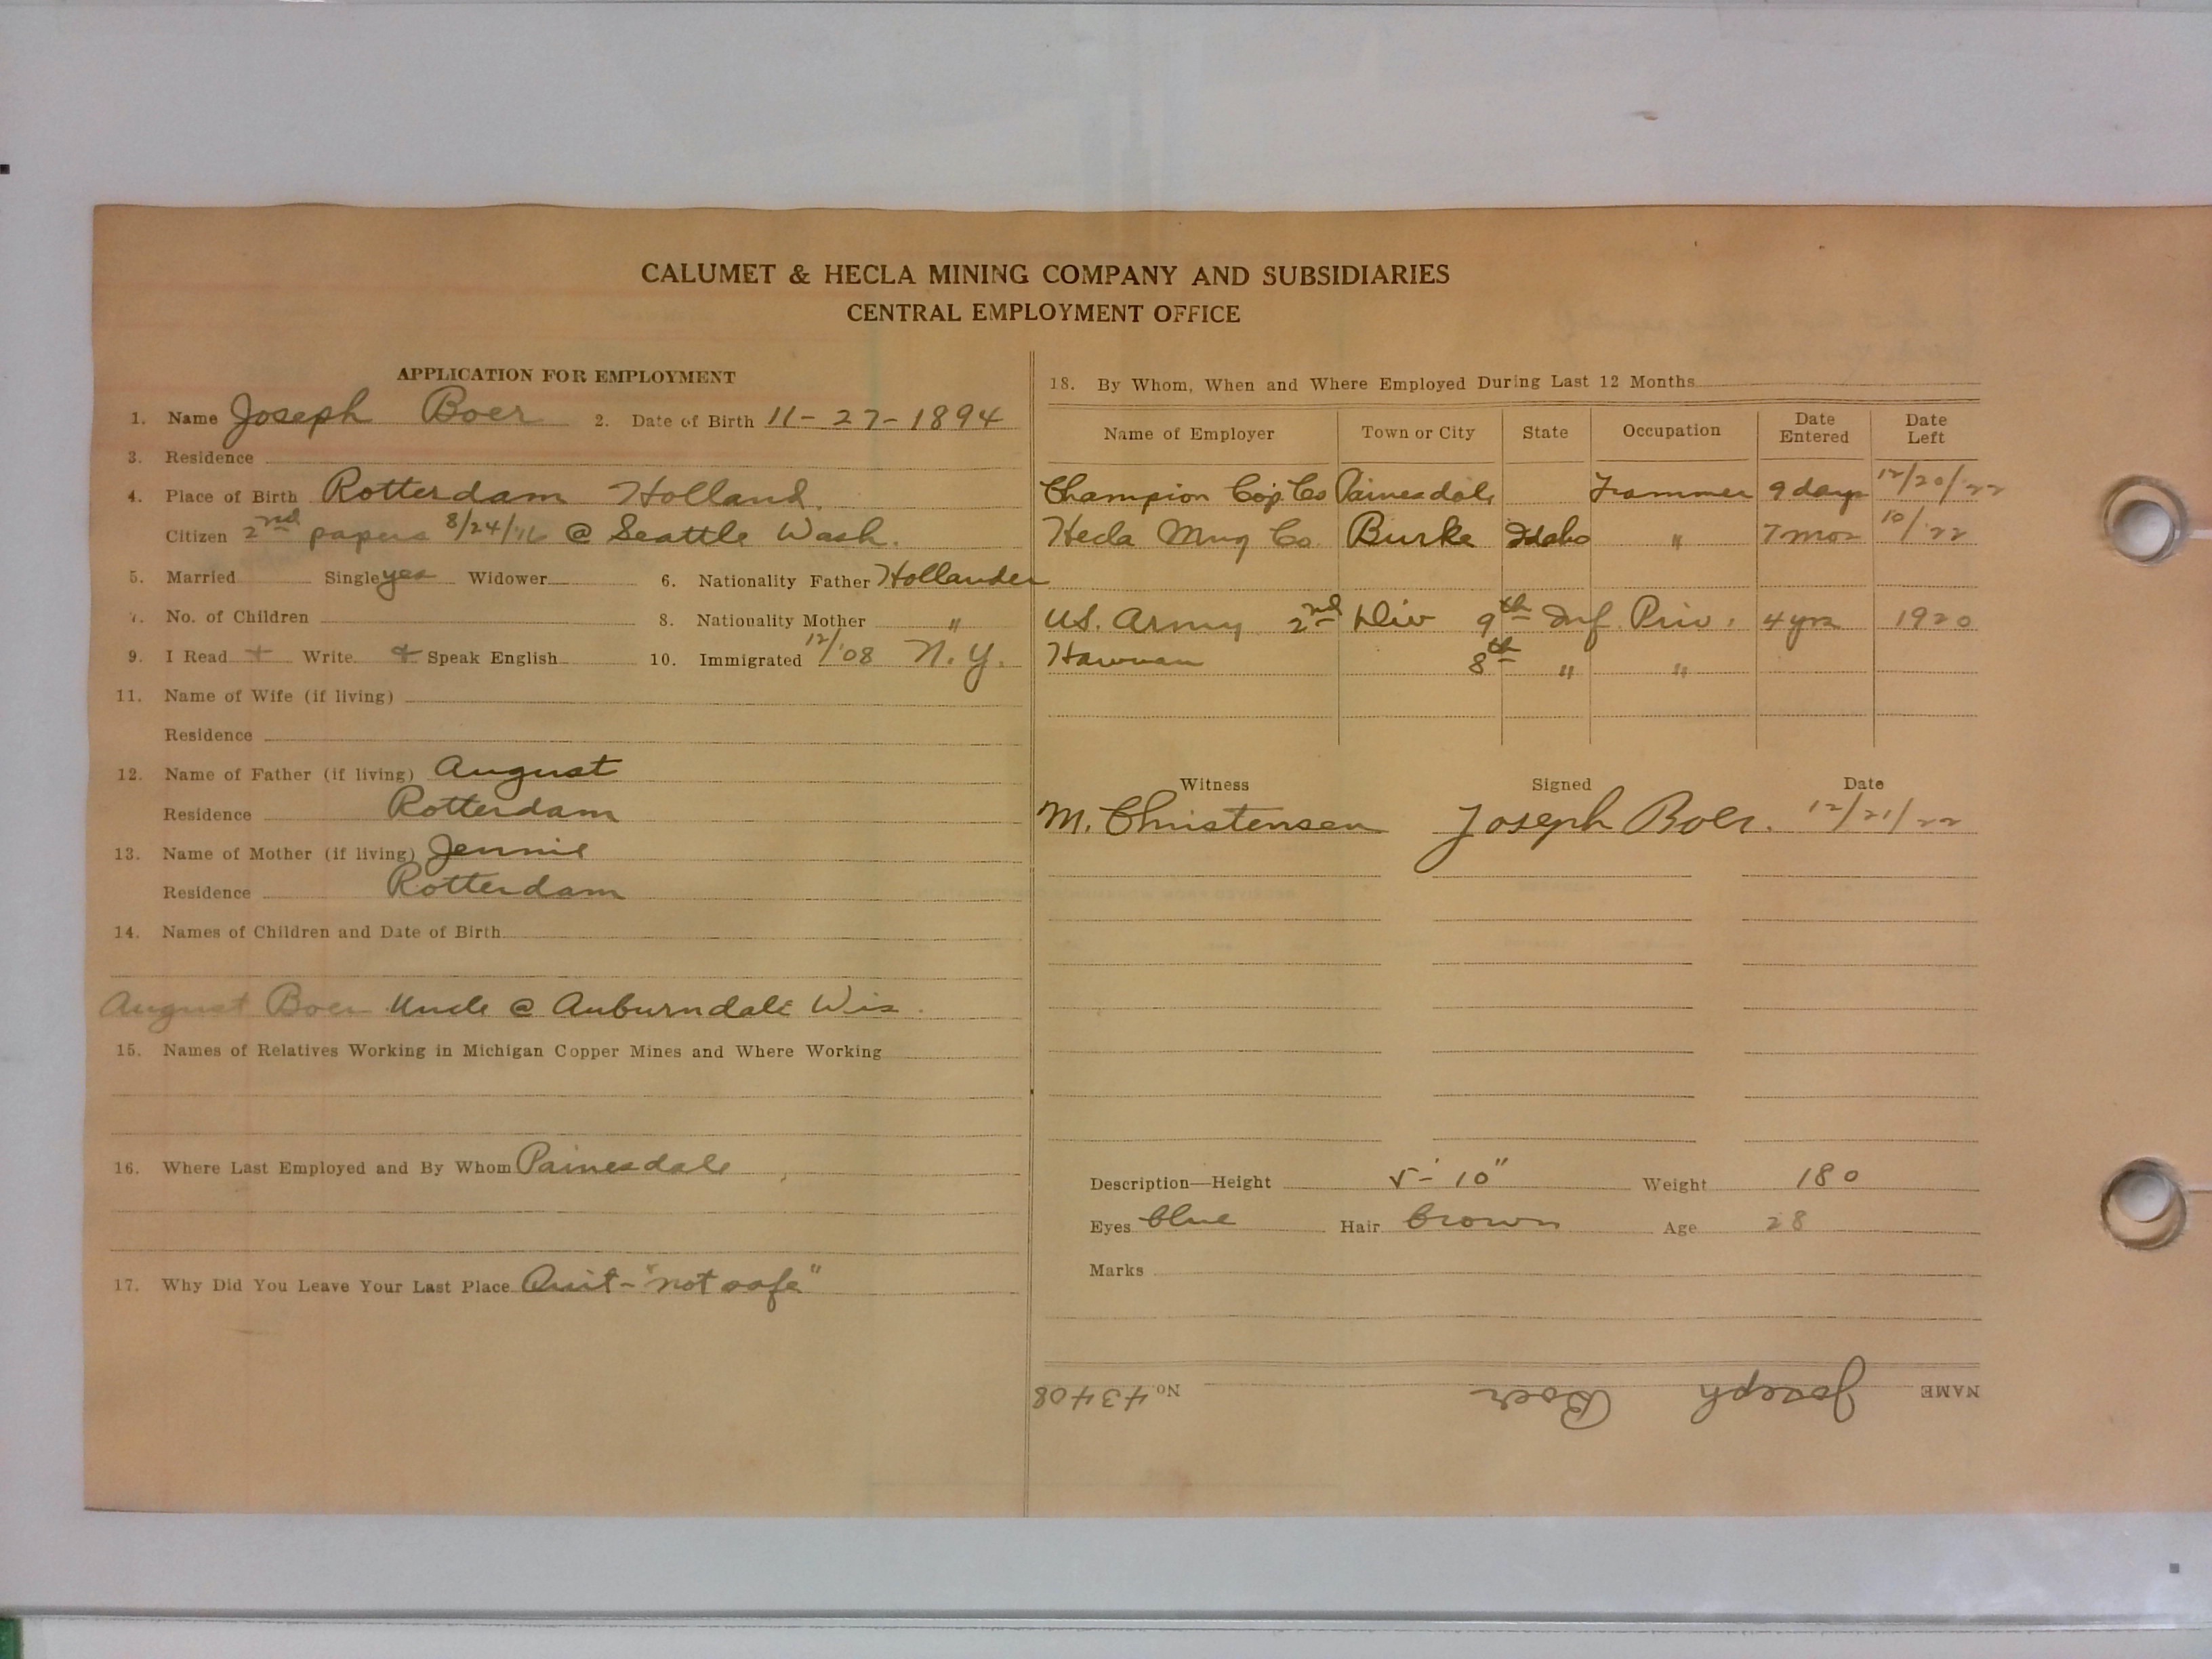 CALUMET & HECLA MINING COMPANY AND SUBSIDIARIES
CENTRAL EMPLOYMENT OFFICE
APPLICATION FOR EMPLOYMENT
1. Name Joseph Boer 2. Date of Birth 11-27-1894
3. Residence
4. Place of Birth Rotterdam Holland.
Citizen 2nd papers 8/24/'16 @ Seattle Wash.
5. Married Single yes Widower 6. Nationality Father Hollander
7. No. of Children 8. Nationality Mother "
9. I Read + Write + Speak English 10. Immigrated 12/'08 N.Y.
11. Name of Wife (if living)
Residence
12. Name of Father (if living) August
Residence Rotterdam
13. Name of Mother (if living) Jennie
Residence Rotterdam
14. Names of Children and Date of Birth
August Boer Uncle @ Auburndale Wis.
15. Names of Relatives Working in Michigan Copper Mines and Where Working
16. Where Last Employed and By Whom Painesdale
17. Why Did You Leave Your Last Place Quit - "not safe"
18. By Whom, When and Where Employed During Last 12 Months
Name of Employer Town or City State Occupation Date Entered Date Left
Champion Cop. Co Painesdale Trammer 9 days 12/20/22
Hecla Mng Co. Burke Idaho " 7 mos 10/'22
U.S. Army 2nd Div 9th Inf. Priv. 4 yrs 1920
8th " "
Witness Signed Date
M. Christensen Joseph Boer. 12/21/22
Description—Height 5'-10" Weight 180
Eyes blue Hair brown Age 28
Marks
NAME Joseph Boer No. 43408